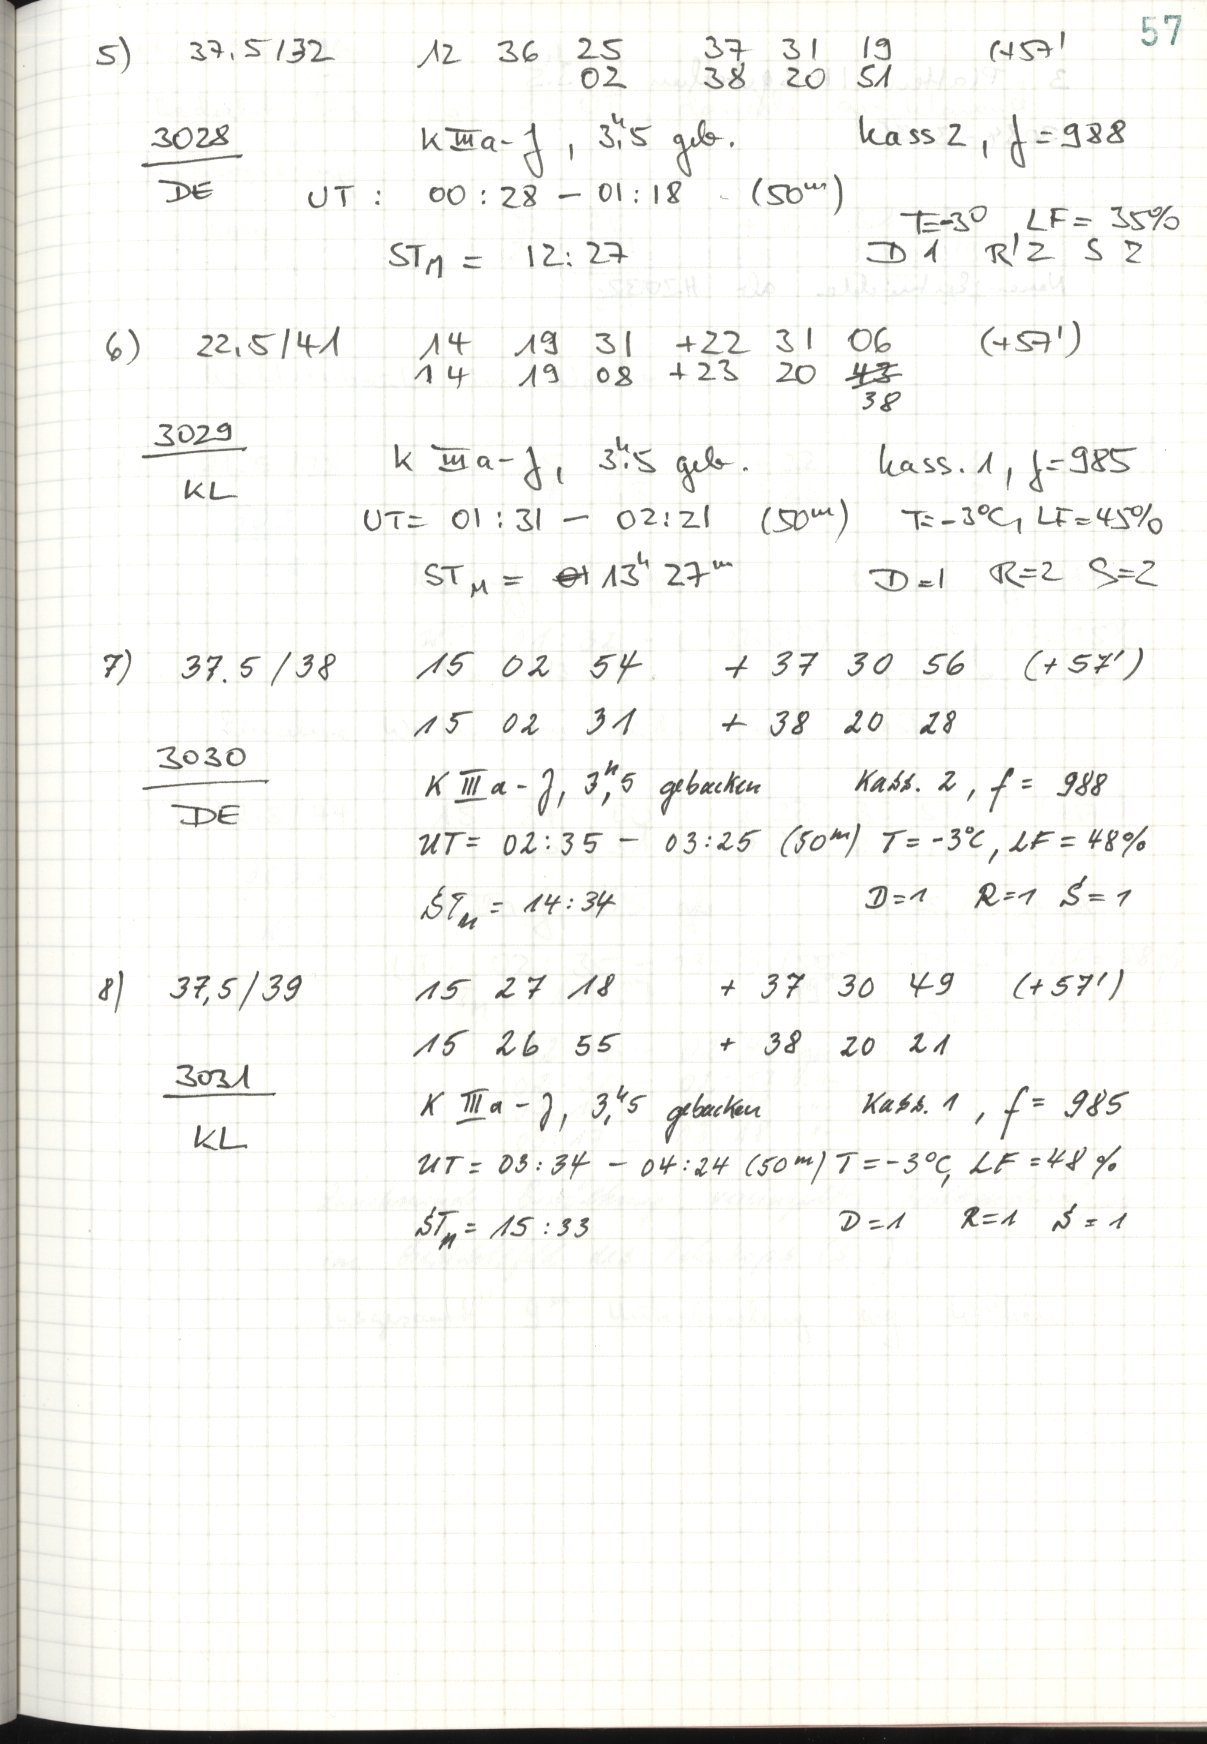 57
5) 37.5/32 12 36 25 37 31 19 (+57'
02 38 20 51
3028 K IIIa-J, 3ʰ.5 geb. Kass 2, f=988
DE UT: 00:28 – 01:18 (50ᵐ)
T=-3°, LF= 35%
STM = 12:27 D 1 R 2 S 2
6) 22.5/41 14 19 31 +22 31 06 (+57')
14 19 08 +23 20 43
38
3029 K IIIa-J, 3ʰ.5 geb. Kass. 1, f=985
KL UT= 01:31 – 02:21 (50ᵐ) T=-3°C, LF=45%
STM = 01 13ʰ 27ᵐ D=1 R=2 S=2
7) 37.5/38 15 02 54 + 37 30 56 (+57')
15 02 31 + 38 20 28
3030 K IIIa-J, 3ʰ,5 gebacken Kass. 2, f= 988
DE UT= 02:35 – 03:25 (50ᵐ) T=-3°C, LF=48%
STM = 14:34 D=1 R=1 S=1
8) 37,5/39 15 27 18 + 37 30 49 (+57')
15 26 55 + 38 20 21
3031 K IIIa-J, 3,ʰ5 gebacken Kass. 1, f= 985
KL UT= 03:34 – 04:24 (50ᵐ) T=-3°C, LF=48%
STM = 15:33 D=1 R=1 S=1